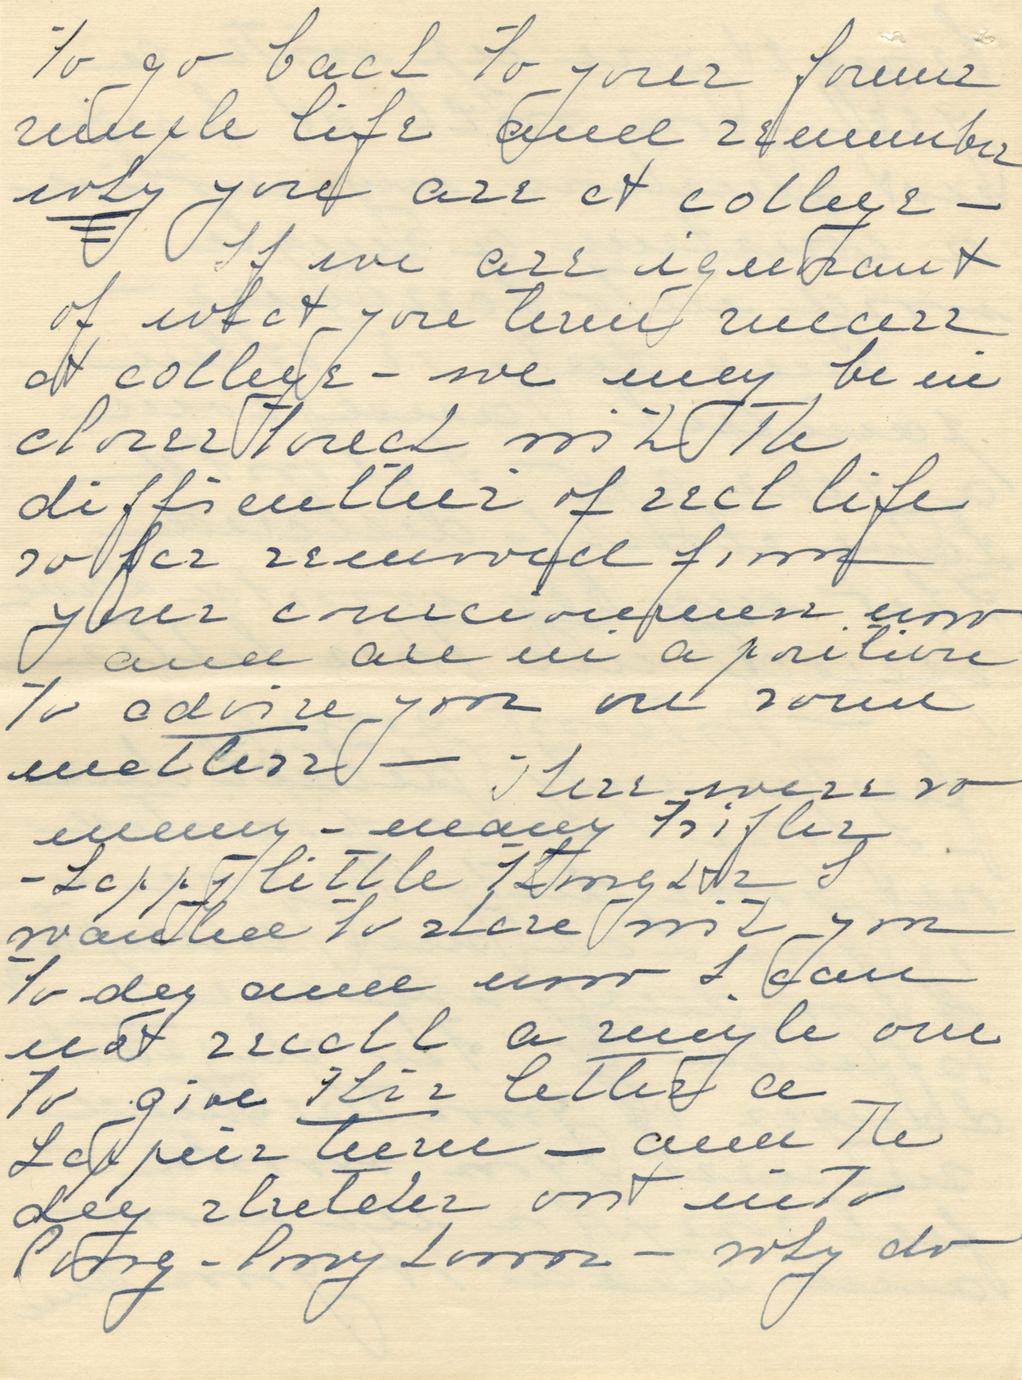 to go back to your former
simple life and remember
why you are at college -
If we are ignorant
of what you term success
at college - we may be in
closer touch with the
difficulties of real life
so far removed from
your consciousness now
and are in a position
to advise you on some
matters -
There were so
many - many trifles
- happy little things I
wanted to share with you
to day and now I can
not recall a single one
to give this letter a
happier turn - and the
day stretches out into
long - long hours - why do